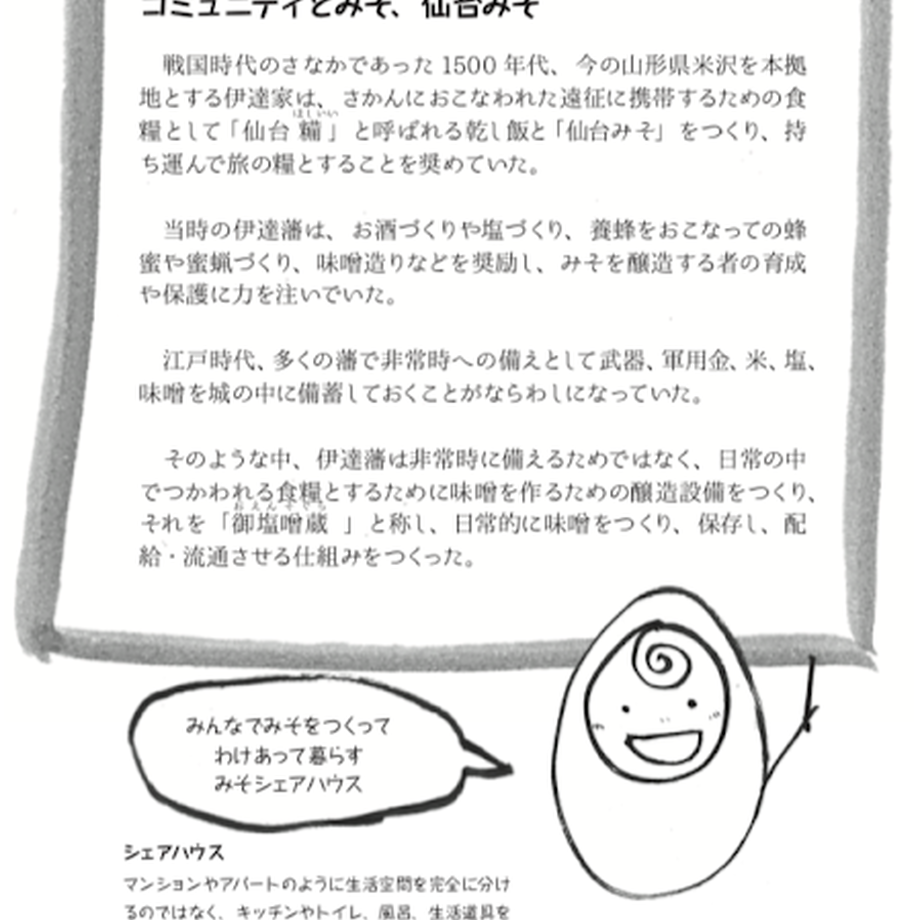 コミュニティとみそ、仙台みそ
戦国時代のさなかであった 1500 年代、今の山形県米沢を本拠
地とする伊達家は、さかんにおこなわれた遠征に携帯するための食
ほしいい
糧として「仙台 糒」と呼ばれる乾し飯と「仙台みそ」をつくり、持
ち運んで旅の糧とすることを奨めていた。
当時の伊達藩は、お酒づくりや塩づくり、養蜂をおこなっての蜂
蜜や蜜蝋づくり、味噌造りなどを奨励し、みそを醸造する者の育成
や保護に力を注いでいた。
江戸時代、多くの藩で非常時への備えとして武器、軍用金、米、塩、
味噌を城の中に備蓄しておくことがならわしになっていた。
そのような中、伊達藩は非常時に備えるためではなく、日常の中
でつかわれる食糧とするために味噌を作るための醸造設備をつくり、
それを「御塩噌蔵 」と称し、日常的に味噌をつくり、保存し、配
給・流通させる仕組みをつくった。
みんなでみそをつくって
わけあって暮らす
みそシェアハウス
シェアハウス
マンションやアパートのように生活空間を完全に分け
るのではなく、キッチンやトイレ、風呂、生活道具を